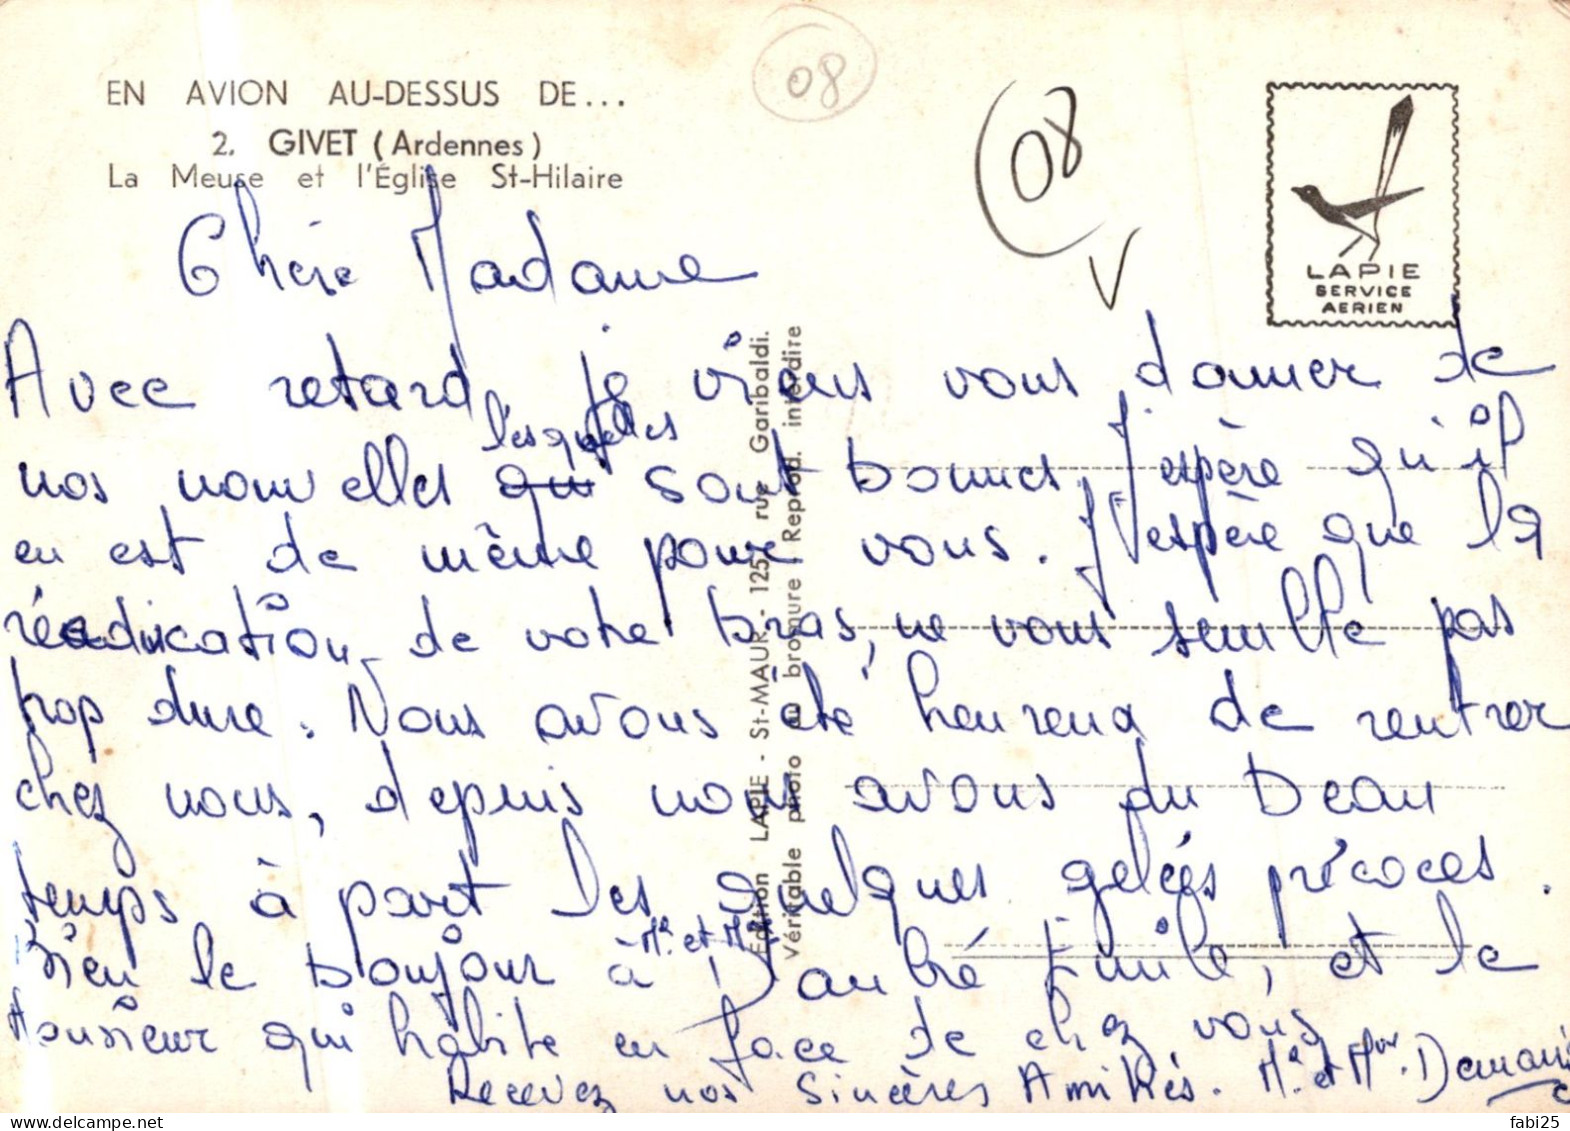 08
EN AVION AU-DESSUS DE...
2. GIVET (Ardennes)
La Meuse et l'Église St-Hilaire
08
V
LAPIE
SERVICE
AERIEN
Édition LAPIE - St-MAUR - 125, rue Garibaldi.
Véritable photo au bromure / Reprod. interdite
Chère Madame
Avec retard, je viens vous donner de
lesquelles
nos nouvelles qui sont bonnes, J'espère qu'il
en est de même pour vous. J'espère que la
réeaducation de votre bras, ne vous semble pas
trop dure. Nous avons été heureux de rentrer
chez nous, depuis nous avons du beau
temps à part les quelques gelées précoces.
Mr et Mme
Bien le bonjour à Daubré Emile, et le
Monsieur qui habite en face de chez vous
Recevez nos Sincères Amitiés. Mr et Mme.
fabi25